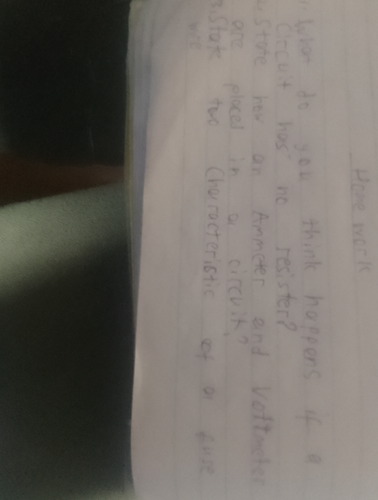 Home work
1. What do you think happens if a
circuit has no resister?
2. State how an Ammeter and Voltmeter
are placed in a circuit?
3. State two characteristic of a fuse
wire